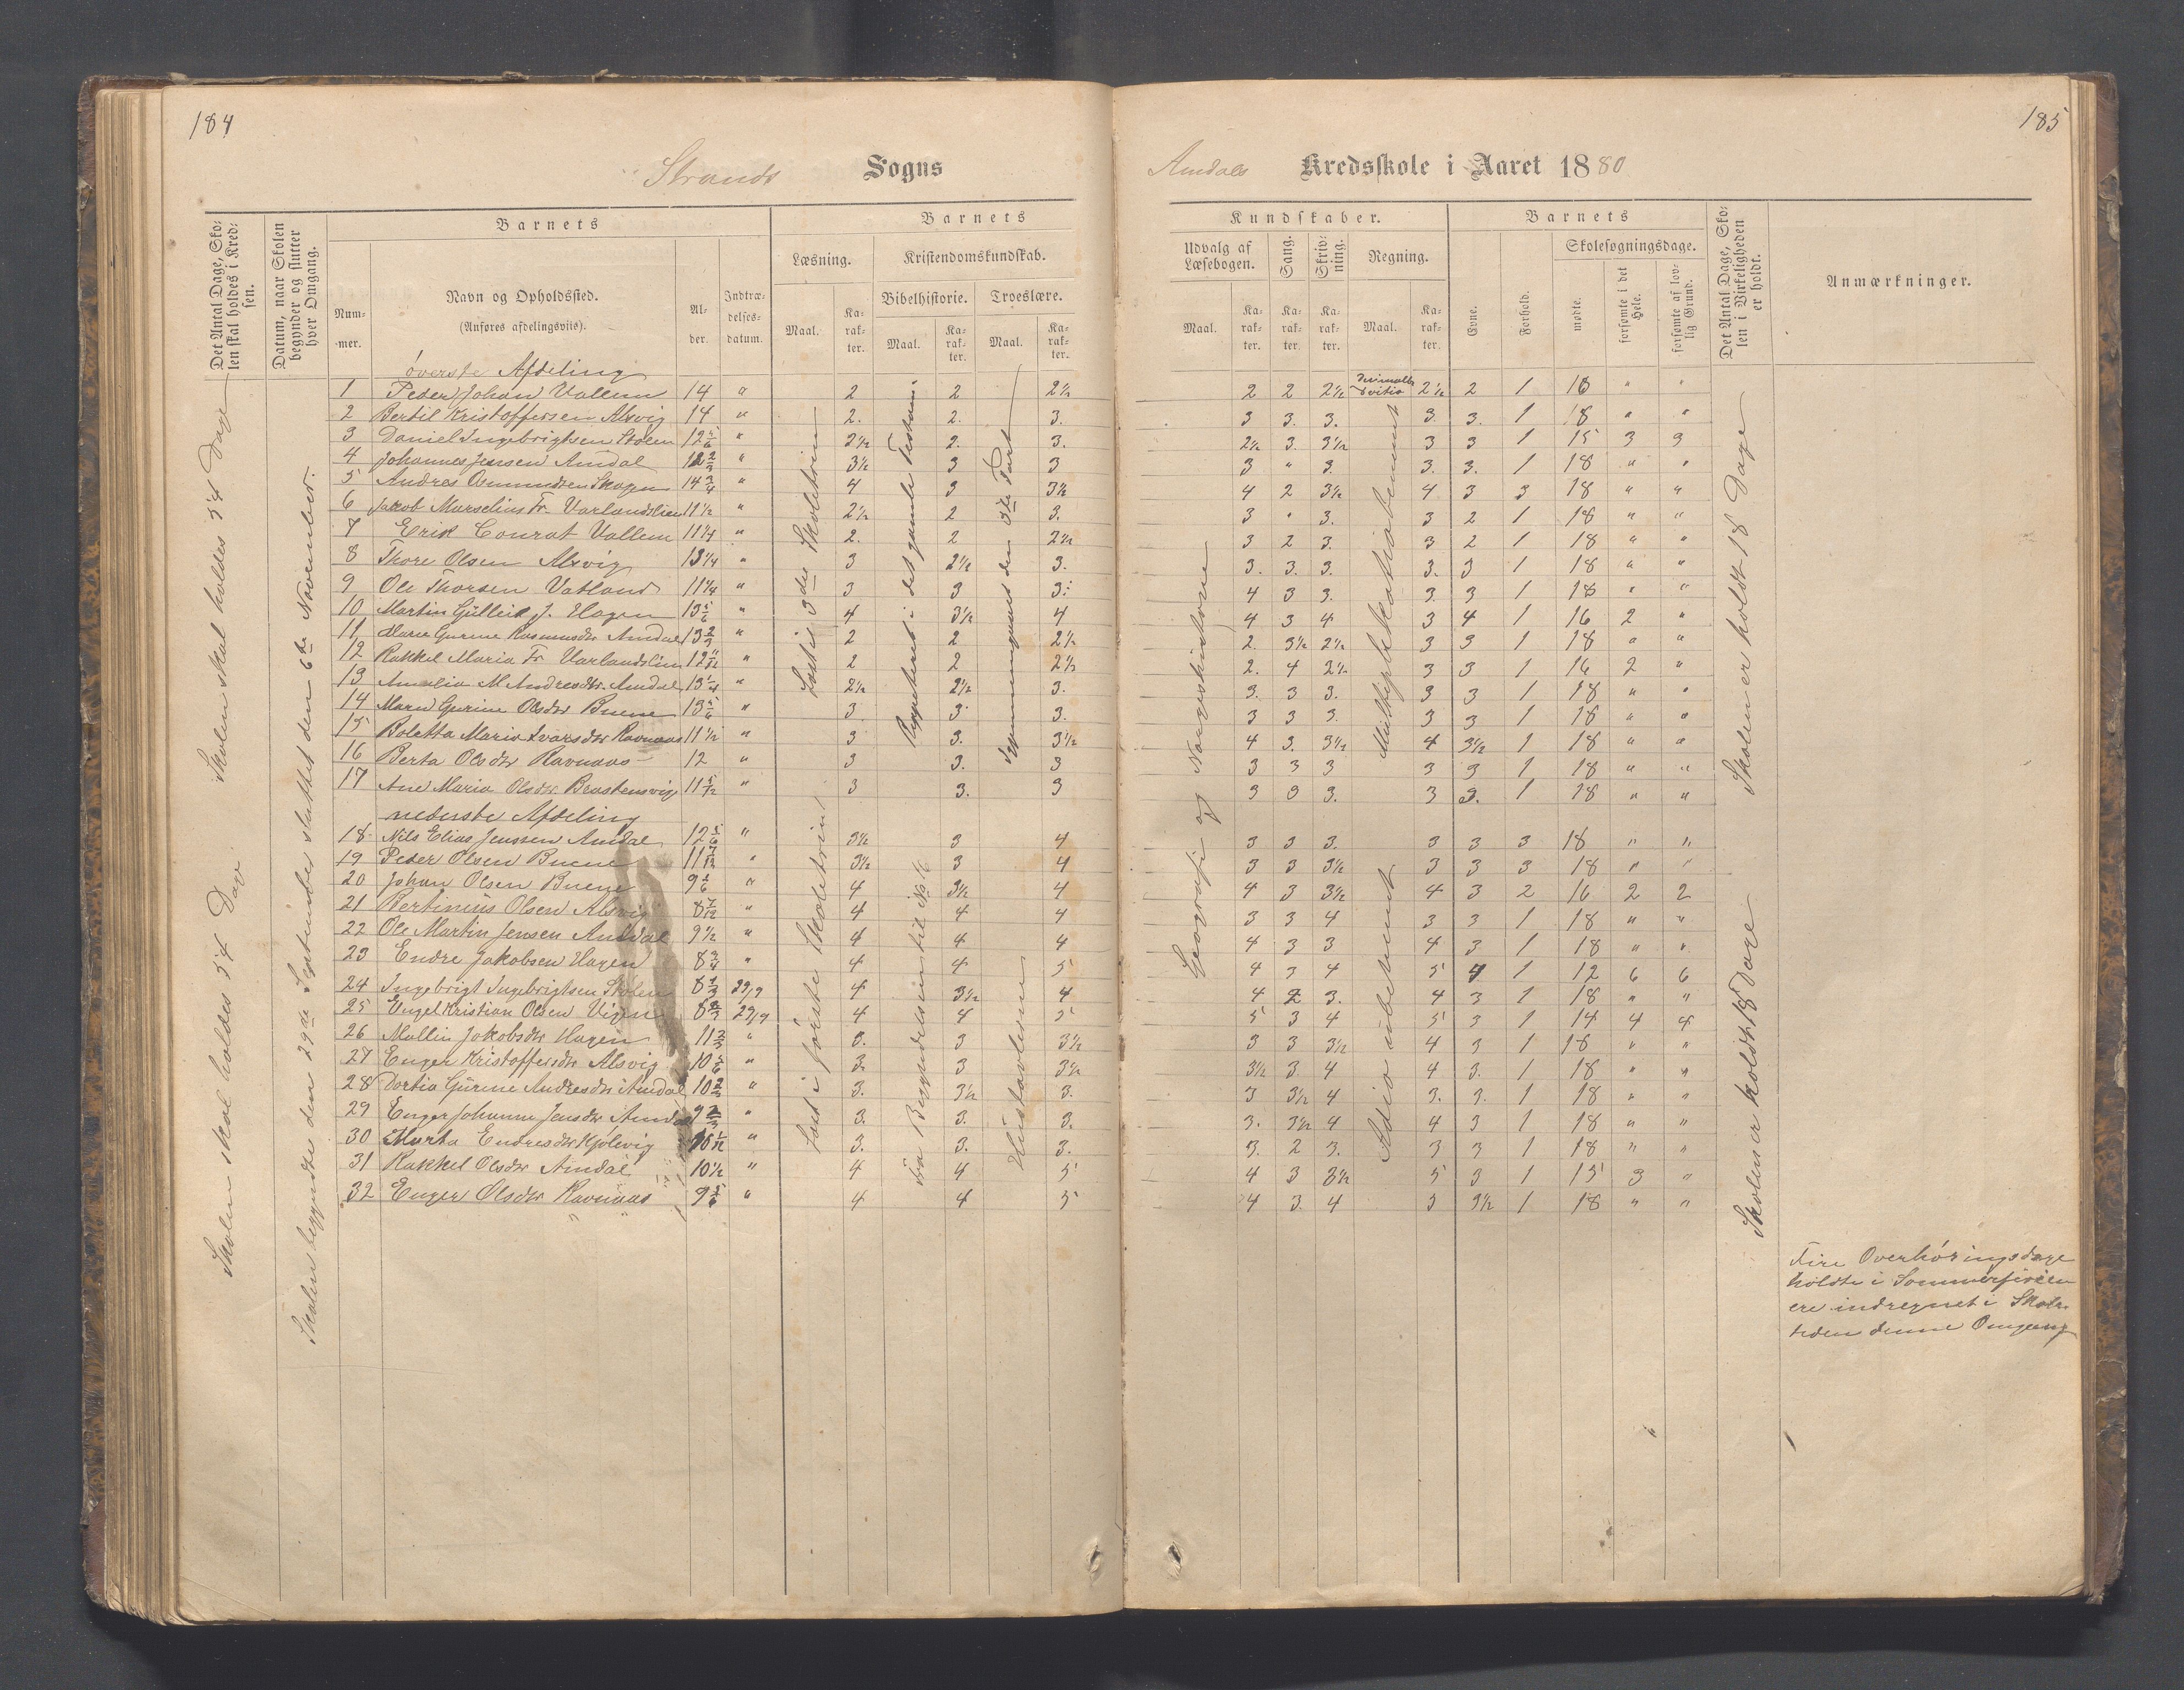 184
185
Strands Sogns
Amdals Kredsskole i Aaret 1880
Det Antal Dage, Sko-
len skal holdes i Kred-
sen.
Datum, naar Skolen
begynder og slutter
hver Omgang.
Barnets
Num-
mer.
Navn og Opholdssted.
(Anføres afdelingsviis).
Al-
der.
Indtræ-
delses-
datum.
Barnets
Læsning.
Kristendomskundskab.
Bibelhistorie. Troeslære.
Maal. Ka-
rak-
ter.
Maal. Ka-
rak-
ter.
Maal. Ka-
rak-
ter.
Kundskaber.
Udvalg af
Læsebogen.
Sang.
Skriv-
ning.
Regning.
Maal. Ka-
rak-
ter.
Ka-
rak-
ter.
Ka-
rak-
ter.
Maal. Ka-
rak-
ter.
Barnets
Evne.
Forhold.
Skolesøgningsdage.
mødte.
forsømte i det
Hele.
forsømte af lov-
lig Grund.
Det Antal Dage, Sko-
len i Virkeligheden
er holdt.
Anmærkninger.
øverste Afdeling
1 Peder Johan Vallem 14 " 2 2 2½ 2 2 2½ 2½ 2 1 18 " "
2 Bertil Kristoffersen Alsvig 14 " 2. 2. 3. 3 3. 3. 3. 3. 1 18 " "
3 Daniel Ingebrigtsen Stolen 12 5/6 " 2½ 2. 3. 2½ 3. 3½ 3 3 1 15 3 3
4 Johannes Jensen Amdal " 3½ 3 3 3 " 3. 3. 3. 1 18 " "
5 Andres Osmundsen Skogen 14 3/4 " 4 3 3½ 4 2 3½ 4 3 3 18 " "
6 Jakob Marselius Fr. Varlandslien 11½ " 2½ 2 3. 3 " 3. 3 2 1 18 " "
7 Erik Conrat Vallem 11¼ " 2. 2 2½ 3 2 3. 3 2 1 18 " "
8 Thore Olsen Alsvig 13¼ " 3 2½ 3. 3. 3. 3. 3. 3 1 18 " "
9 Ole Thorsen Vatland 11¼ " 3 3 3. 4 3 3. 3. 3 1 18 " "
10 Martin Gülleik J. Hagen 13 5/6 " 4 3½ 4 4 3 4 3 4 1 16 2 "
11 Maren Gurine Rasmusdtr. Amdal 13 2/3 " 2 2 2½ 2. 3½ 2½ 3 3 1 18 " "
12 Rakkel Maria Fr. Varlandslien 12 11/12 " 2 2 2½ 2. 4 2½ 3 3 1 16 2 "
13 Amalia M Andresdtr. Amdal 13¼ " 2½ 2½ 3. 3. 3 3. 3 3 1 18 " "
14 Maren Gurine Olsdtr Buene 13 5/6 " 3. 3 3. 3 3 3. 3 3 1 18 " "
15 Boletta Maria Ivarsdtr Ravnaas 11½ " 3 3. 3½ 4 3. 3½ 4 3½ 1 18 " "
16 Berta Olsdtr Ravnaas 12 " 3 3. 3 3 3 3 3 3 1 18 " "
17 Ane Maria Olsdtr Brastensvig 11 5/12 " 3 3. 3 3 3 3. 3 3. 1 18 " "
nederste Afdeling
18 Nils Elias Jenssen Amdal 12 5/6 " 3½ 3 4 3 3 3. 3 3 3 18 " "
19 Peder Olsen Buene 11 7/12 " 3½ 3 4 3 3 3½ 3 3 3 18 " "
20 Johan Olsen Buene 9 1/6 " 4 3½ 4 4 3 3½ 4 3 2 16 2 2
21 Bertinius Olsen Alsvig 8 7/12 " 4 4 4 3 3 4 3 3 1 18 " "
22 Ole Martin Jensen Amdal 9½ " 4 4 4 4 3 3 4 3 1 18 " "
23 Endre Jakobsen Hagen 8 3/4 " 4 4 5 4 3 4 5 4 1 12 6 6
24 Ingebrigt Ingebrigtsen Stolen 29/9 4 3½ 4 4 2 3. 4 3 1 18 " "
25 Engel Kristian Olsen Vigen 29/9 4 4 5 5 3 4 5 3 1 14 4 4
26 Mallin Jakobsdtr Hagen 11 2/3 " 3. 3 3½ 3 3 3½ 4 3 1 18 " "
27 Enger Kristoffersdtr Alsvig 10 5/6 " 3. 3 3½ 3½ 3. 4 4 3. 1 18 " "
28 Dortia Gürine Andresdtr Amdal 10 2/3 " 3. 3½ 3. 3 3½ 4 3. 3. 1 18 " "
29 Enger Johanne Jensdtr Amdal " 3. 3. 3. 3. 3½ 4 4 3 1 18 " "
30 Marta Endresdtr " 3. 3. 3. 3. 2 3. 3 3 1 18 " "
31 Rakkel Olsdtr Amdal 10½ " 4 4 5 4 3 3½ 5 3 1 15 3 "
32 Enger Olsdtr Ravnaas 9 5/6 " 4 4 5 4 3. 4 3 3½ 1 18 " "
Skolen skal holdes 54 Dage
Skolen skal holdes 54 Dage
Skolen begyndte den 29de September sluttet den 6te November.
Læst i 3die Skoletrin
Læst i første Skoletrin
Reppeteret i det gamle Testam.
fra Begyndelsen til No 16
igjennemgaaet den 3die Part
Hustavlerne
Geografi og Norgeshistorie
Multiplikationbenevnt
Adio ubevnt
Skolen er holdt 18 Dage
Skolen er holdt 18 Dage
Fire Overhøringsdage
holdte i Sommerferien
ere indregnet i Skole-
tiden denne Omgang